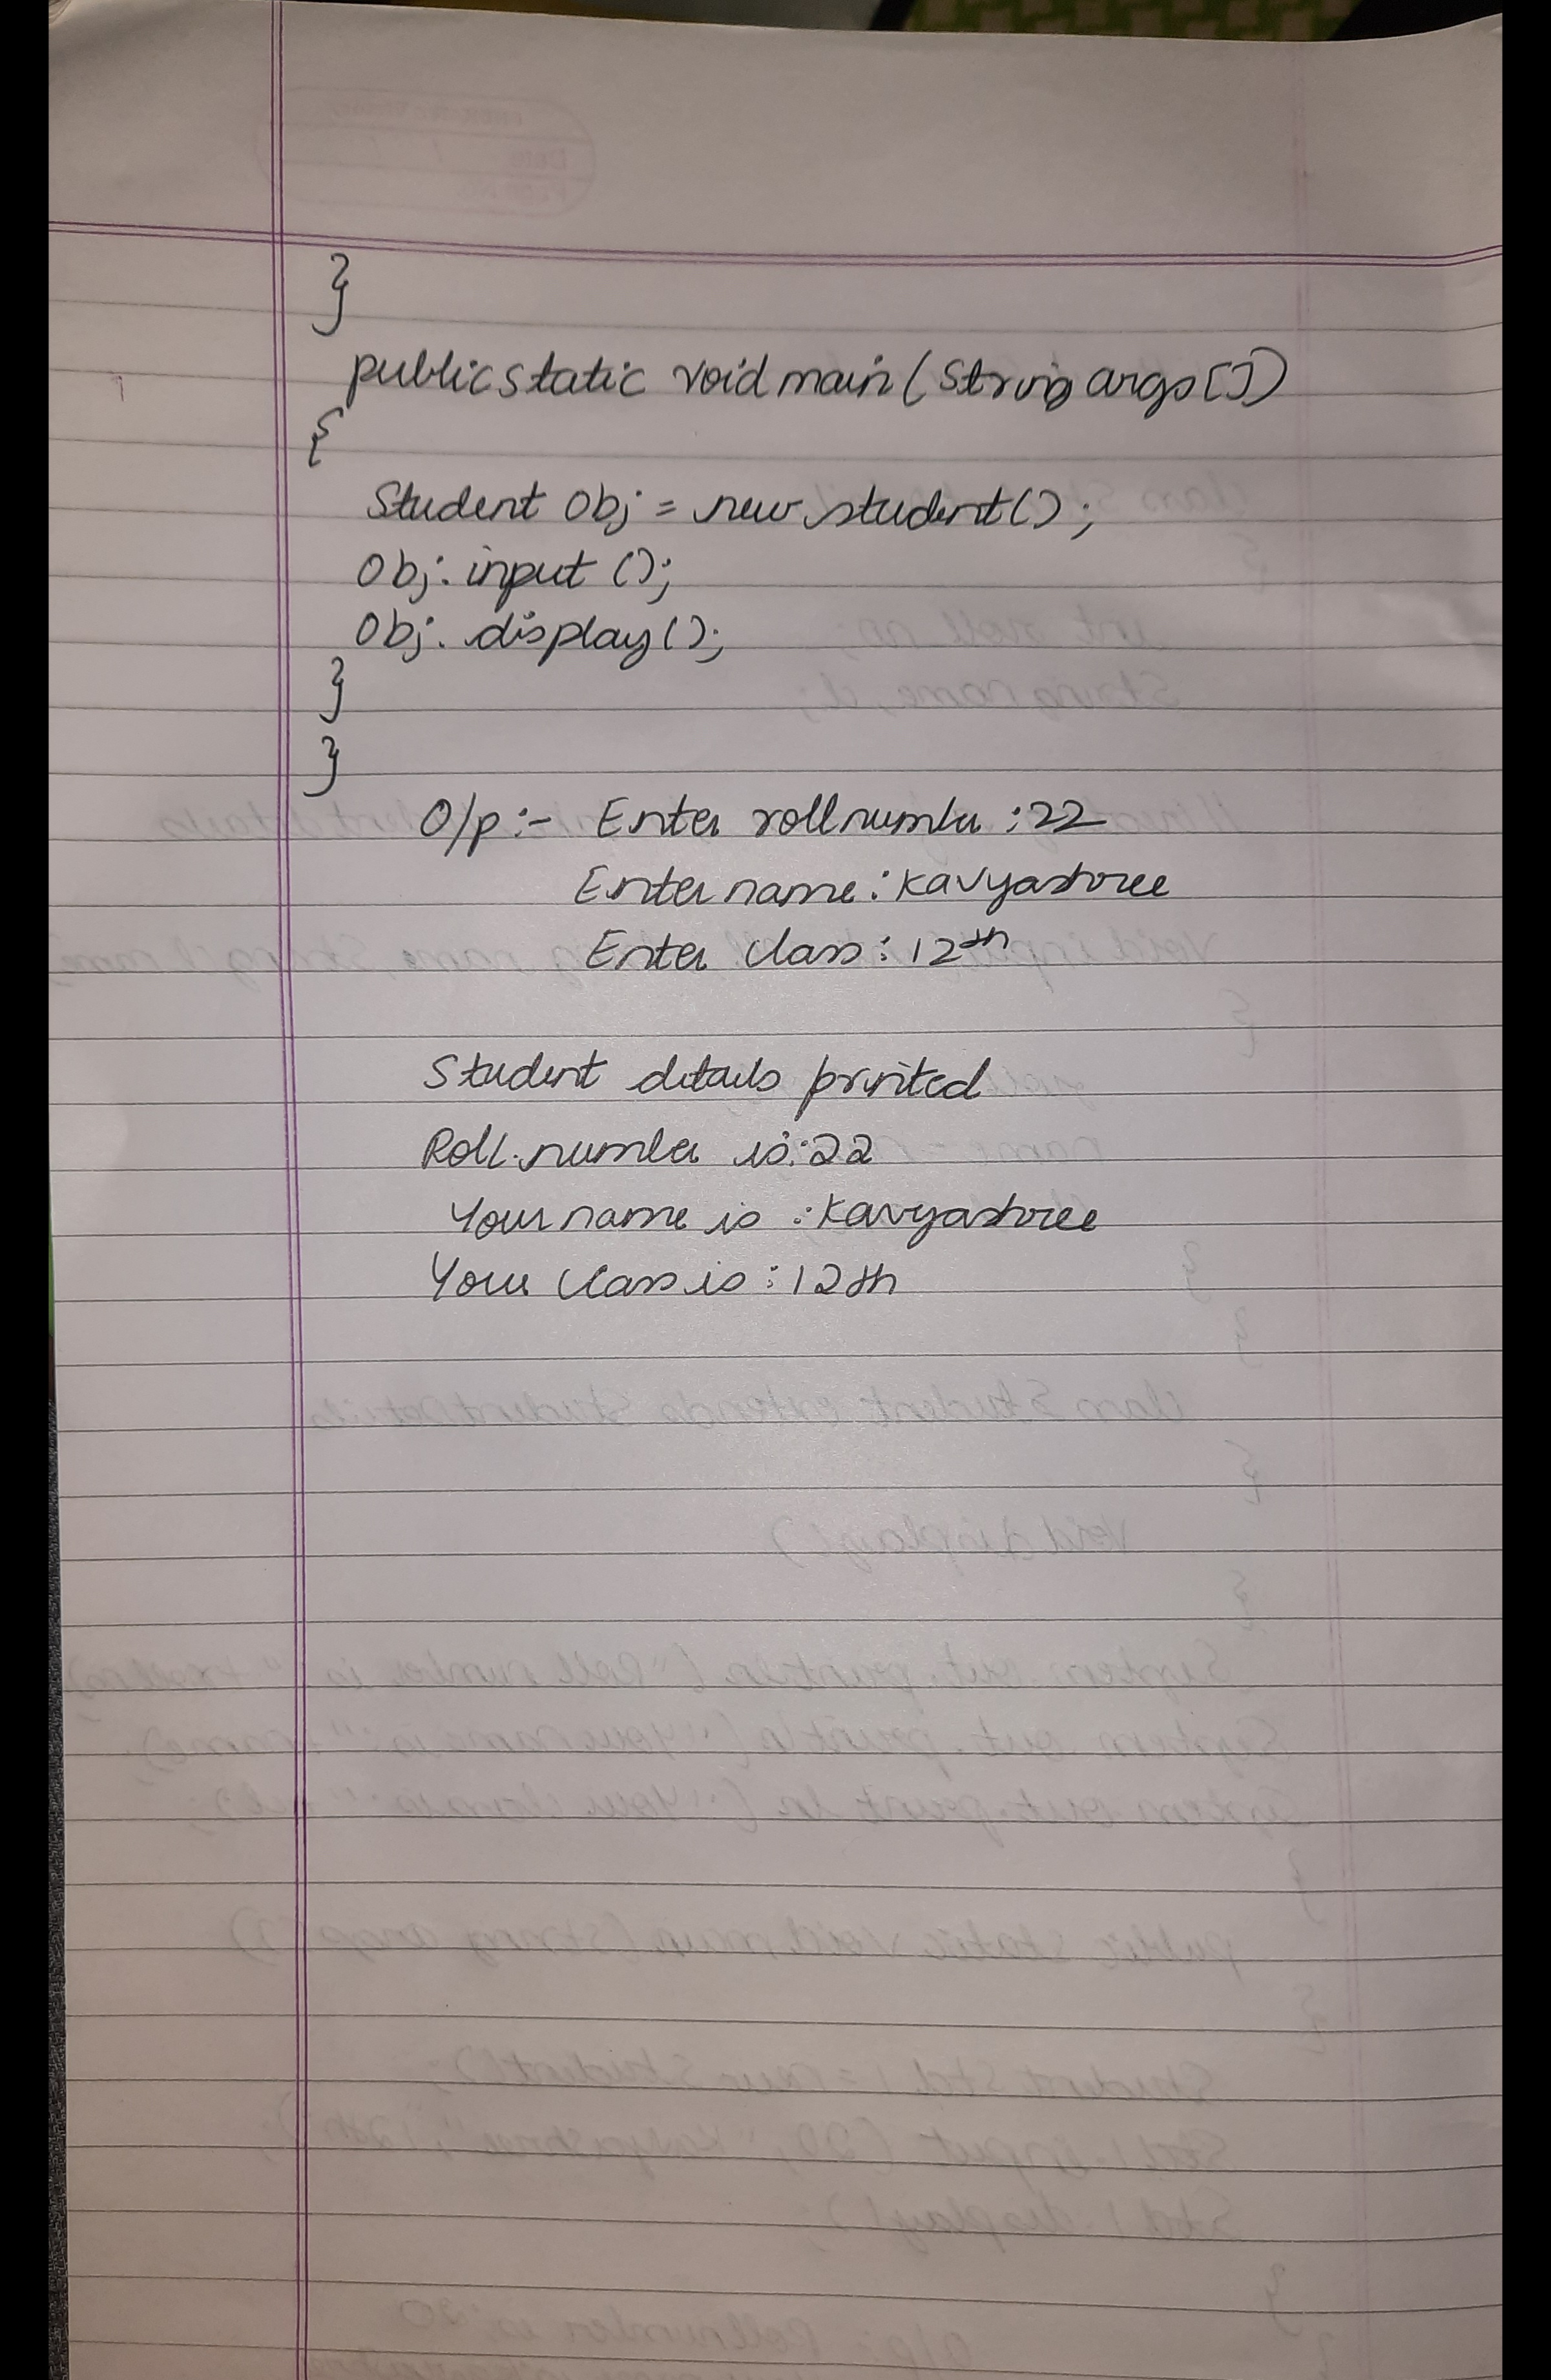 }
public static void main (String args[])
{
Student Obj = new student();
Obj. input ();
Obj. display();
}
}
O/p :- Enter roll number : 22
Enter name : Kavyashree
Enter class : 12th
Student details printed
Roll number is : 22
Your name is : Kavyashree
Your class is : 12th